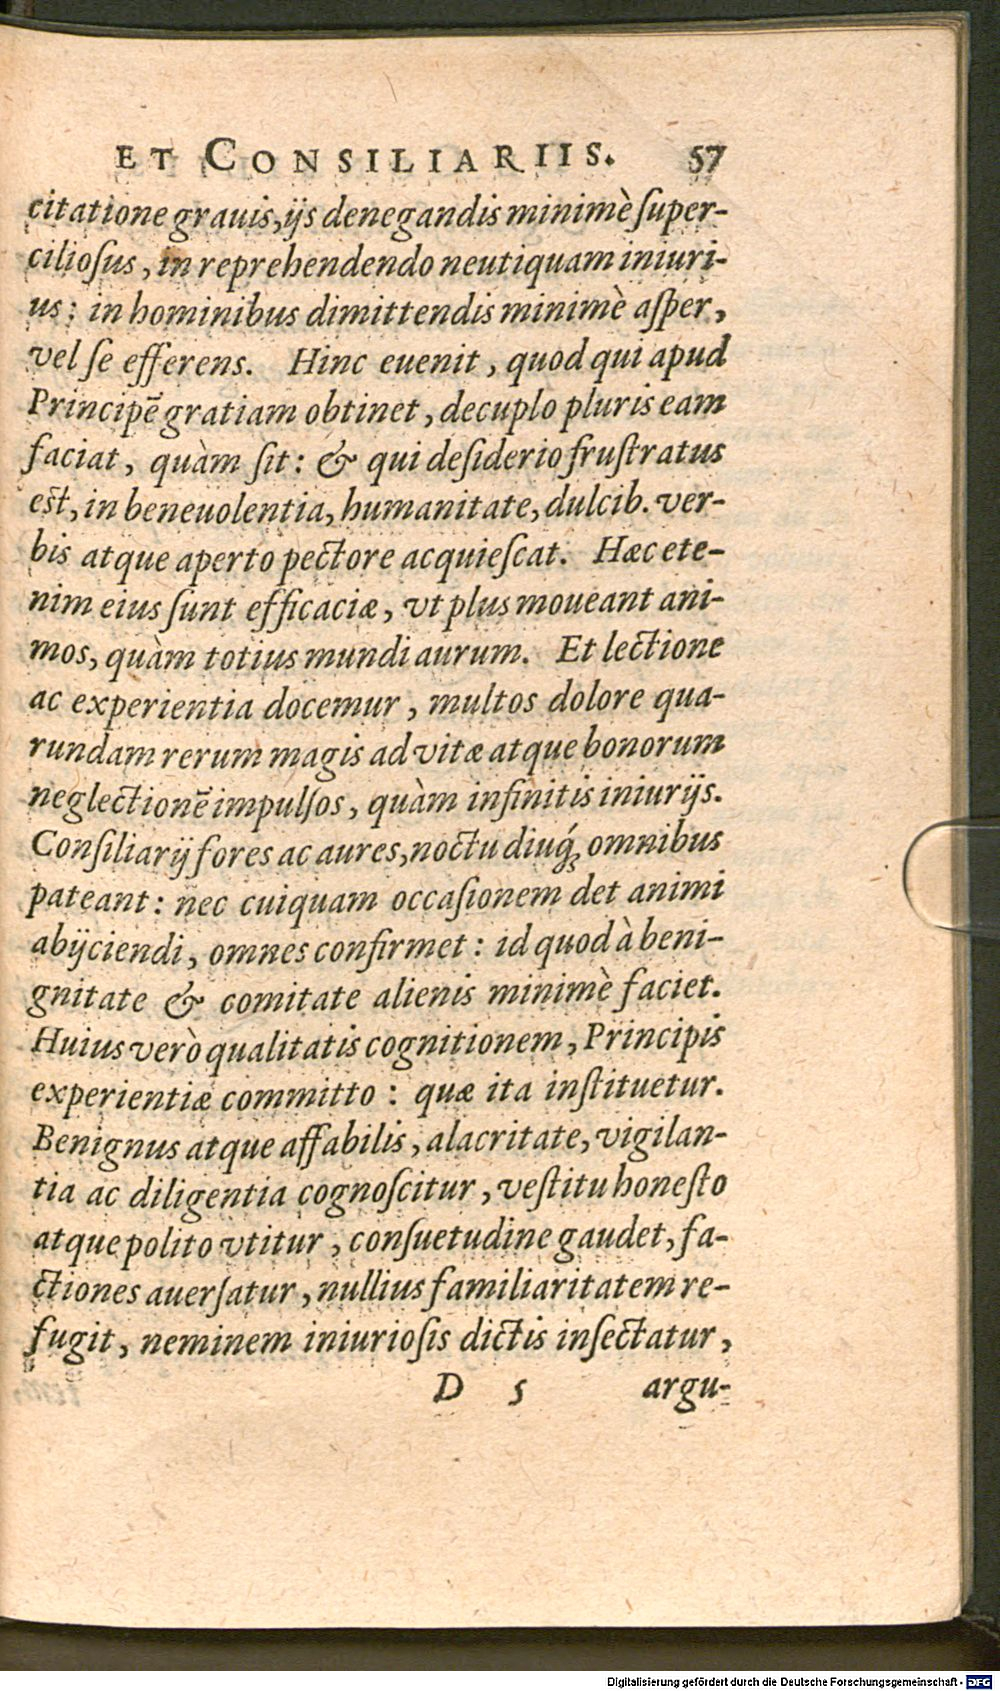 ET CONSILIARIIS. 57
citatione grauis, ijs denegandis minimè ſuper-
cilioſus, in reprehendendo neutiquam iniuri-
us: in hominibus dimittendis minimè aſper,
vel ſe efferens. Hinc euenit, quod qui apud
Principē gratiam obtinet, decuplo pluris eam
faciat, quàm ſit: & qui deſiderio fruſtratus
eſt, in beneuolentia, humanitate, dulcib. ver-
bis atque aperto pectore acquieſcat. Hæc ete-
nim eius ſunt efficaciæ, vt plus moueant ani-
mos, quàm totius mundi aurum. Et lectione
ac experientia docemur, multos dolore qua-
rundam rerum magis ad vitæ atque bonorum
neglectionē impulſos, quàm infinitis iniurijs.
Conſiliarij fores ac aures, noctu diuq́; omnibus
pateant: nec cuiquam occaſionem det animi
abijciendi, omnes confirmet: id quod à beni-
gnitate & comitate alienis minimè faciet.
Huius verò qualitatis cognitionem, Principis
experientiæ committo: quæ ita inſtituetur.
Benignus atque affabilis, alacritate, vigilan-
tia ac diligentia cognoſcitur, veſtitu honeſto
atque polito vtitur, conſuetudine gaudet, fa-
ctiones auerſatur, nullius familiaritatem re-
fugit, neminem iniurioſis dictis inſectatur,
D 5 argu-
Digitalisierung gefördert durch die Deutsche Forschungsgemeinschaft - DFG